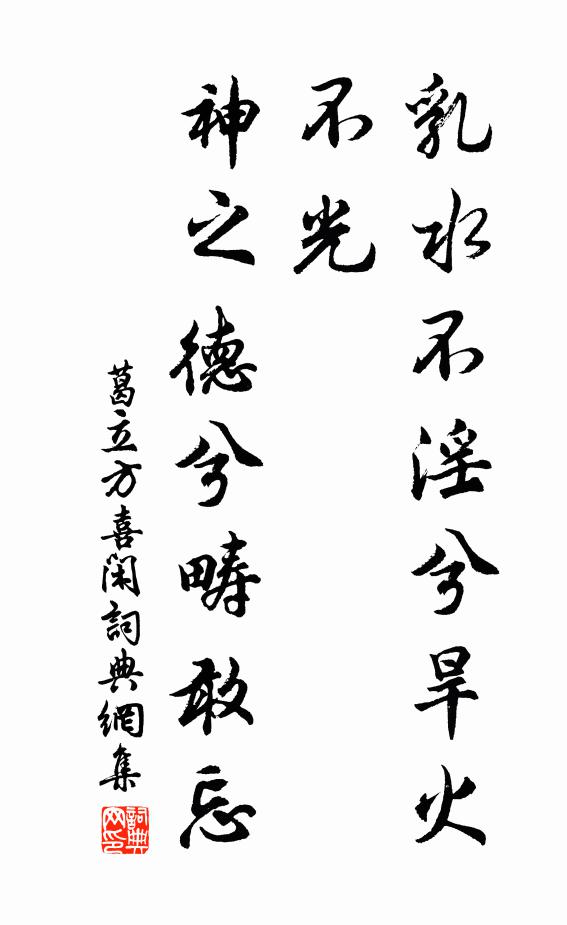 乳水不淫兮旱火
不光
神之德兮畴敢忘
葛立方喜闲詞典網集
詞典网印